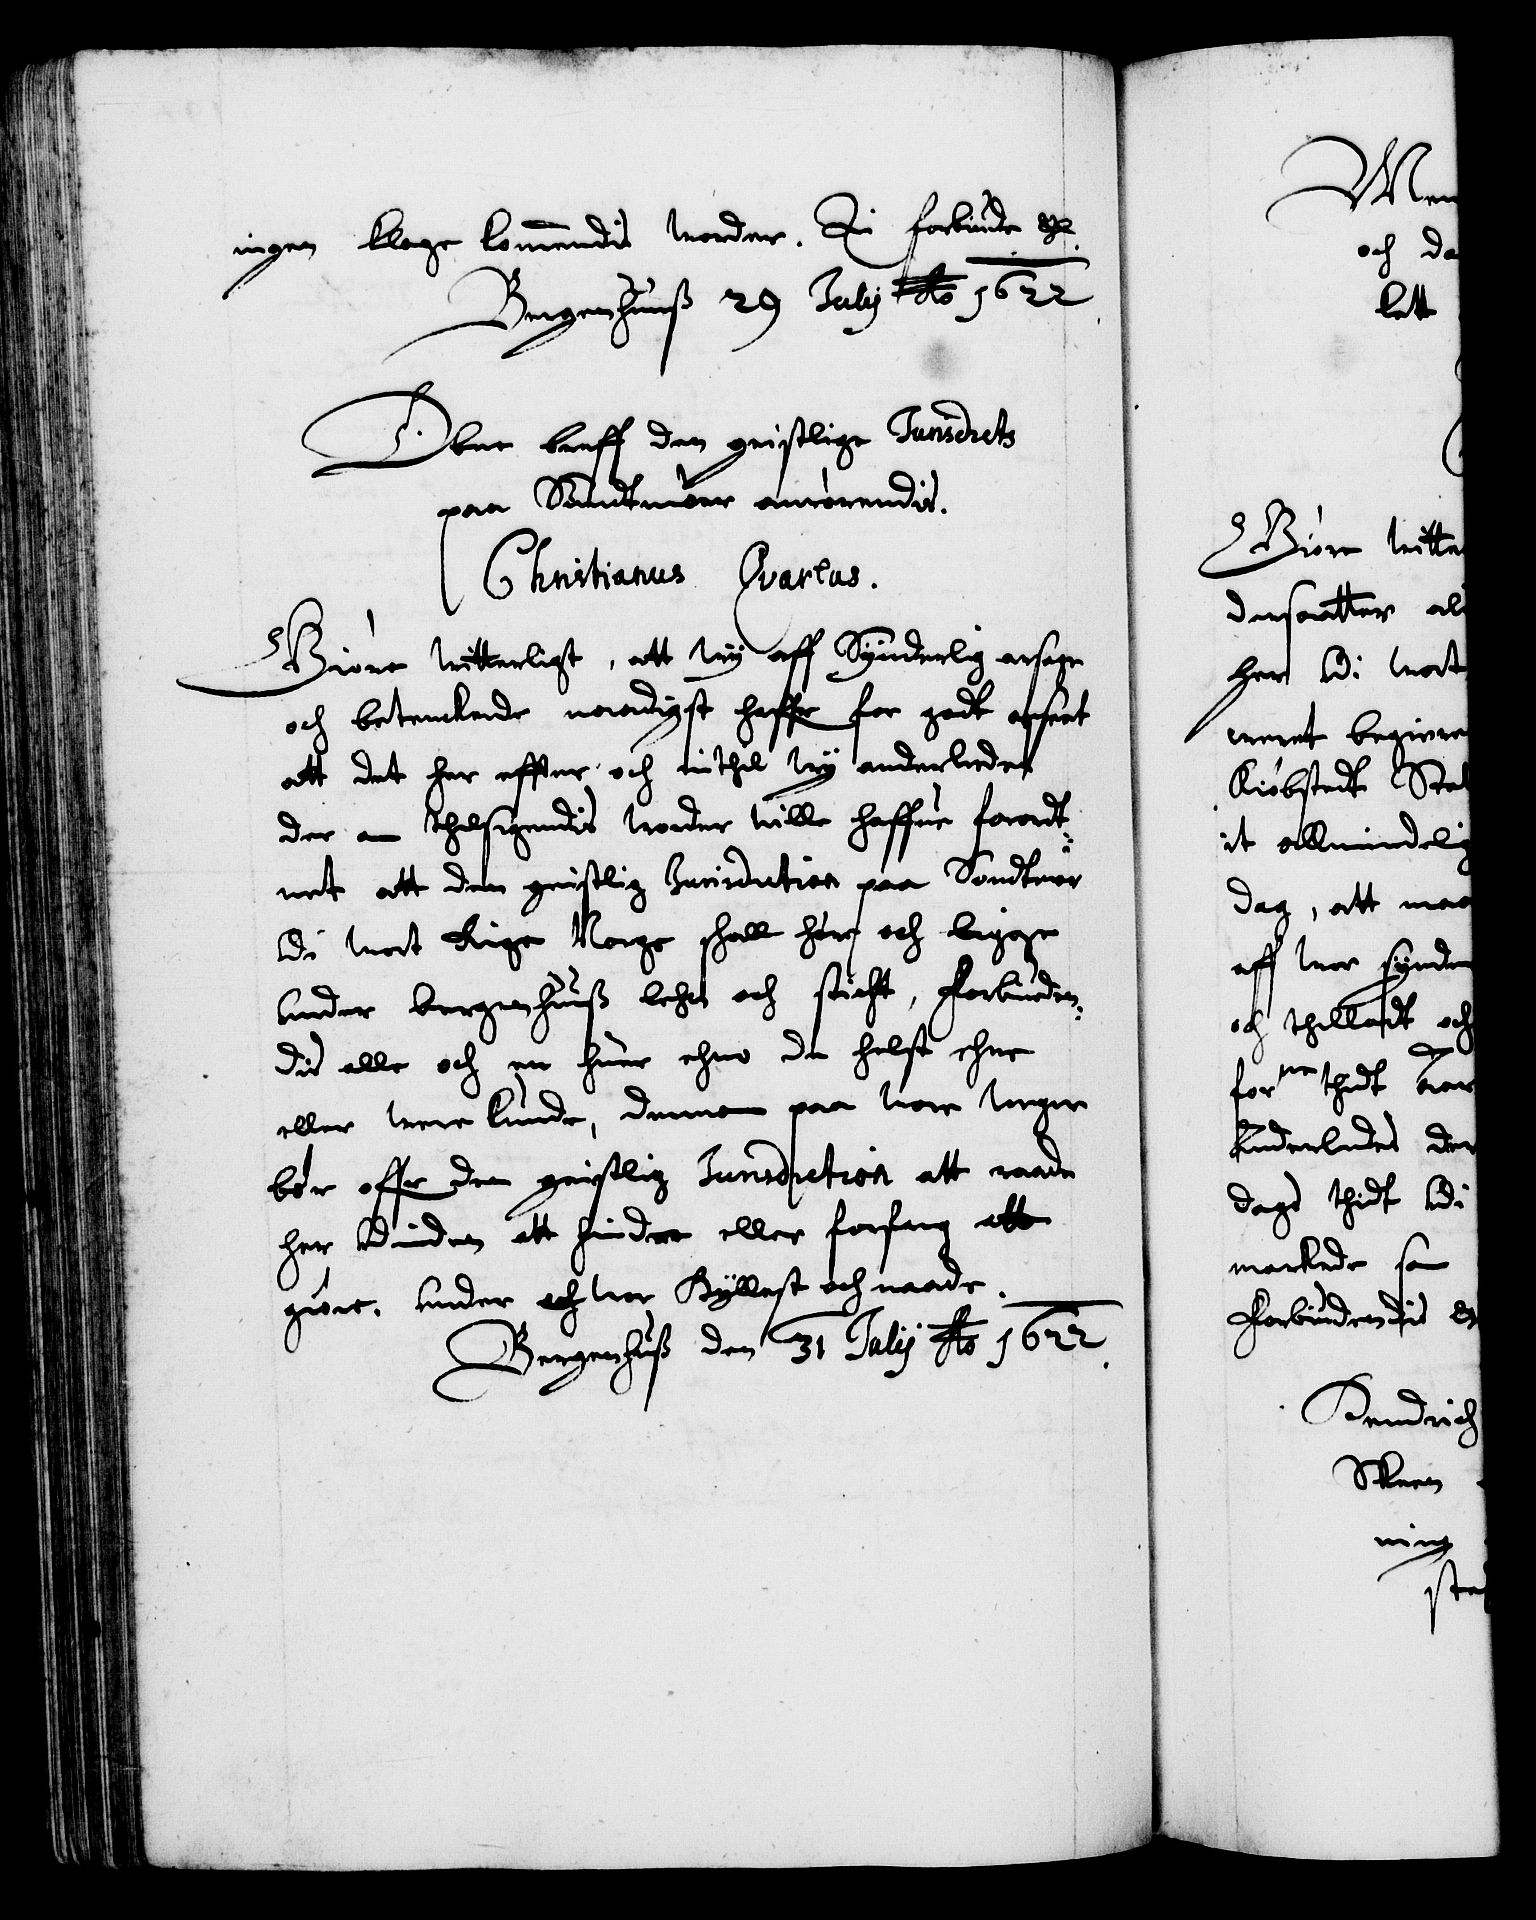 ingen klage kommendis worder. Vi forbiude etc.
Bergenhuuß 29 Julij Ao 1622
Obne breff den geistlige Jurisdicts
paa Sundtmöer anrörendis.
Christianus Qvartus.
Giöre witterligt, att wy aff Synderlig orsage
och betenckende naadigst haffue for godt anseet
att det her effter och inthil wy anderledes
der om thilsigendis worder wille haffue forordt-
net att den geistlig Jurisdiction paa Sondtmör
udi wort Rige Norge shall höre och ligge
under bergenhuuß lehn och sticht, Forbiuden-
dis alle och en huer ehuo de helst ehre
eller were kunde, dennom paa wore wegne
bör offuer den geistlig Jurisdiction att raade
her udinden att hindre eller forfang att
giöre. under wor Hyllest och naade.
Bergenhuß den 31 Julij Ao 1622
Men
och da
lett
Giöre witte
dersaatter al
her udi wort
weret begiere
Kiöbstedt Sta
it allmindelig
dag, att maa
aff wor synder
och thilladt och
forne thidt
Anderledes der
dags thidt udi
markede som
Forbiudendis
Hendrich
Skeen
ning